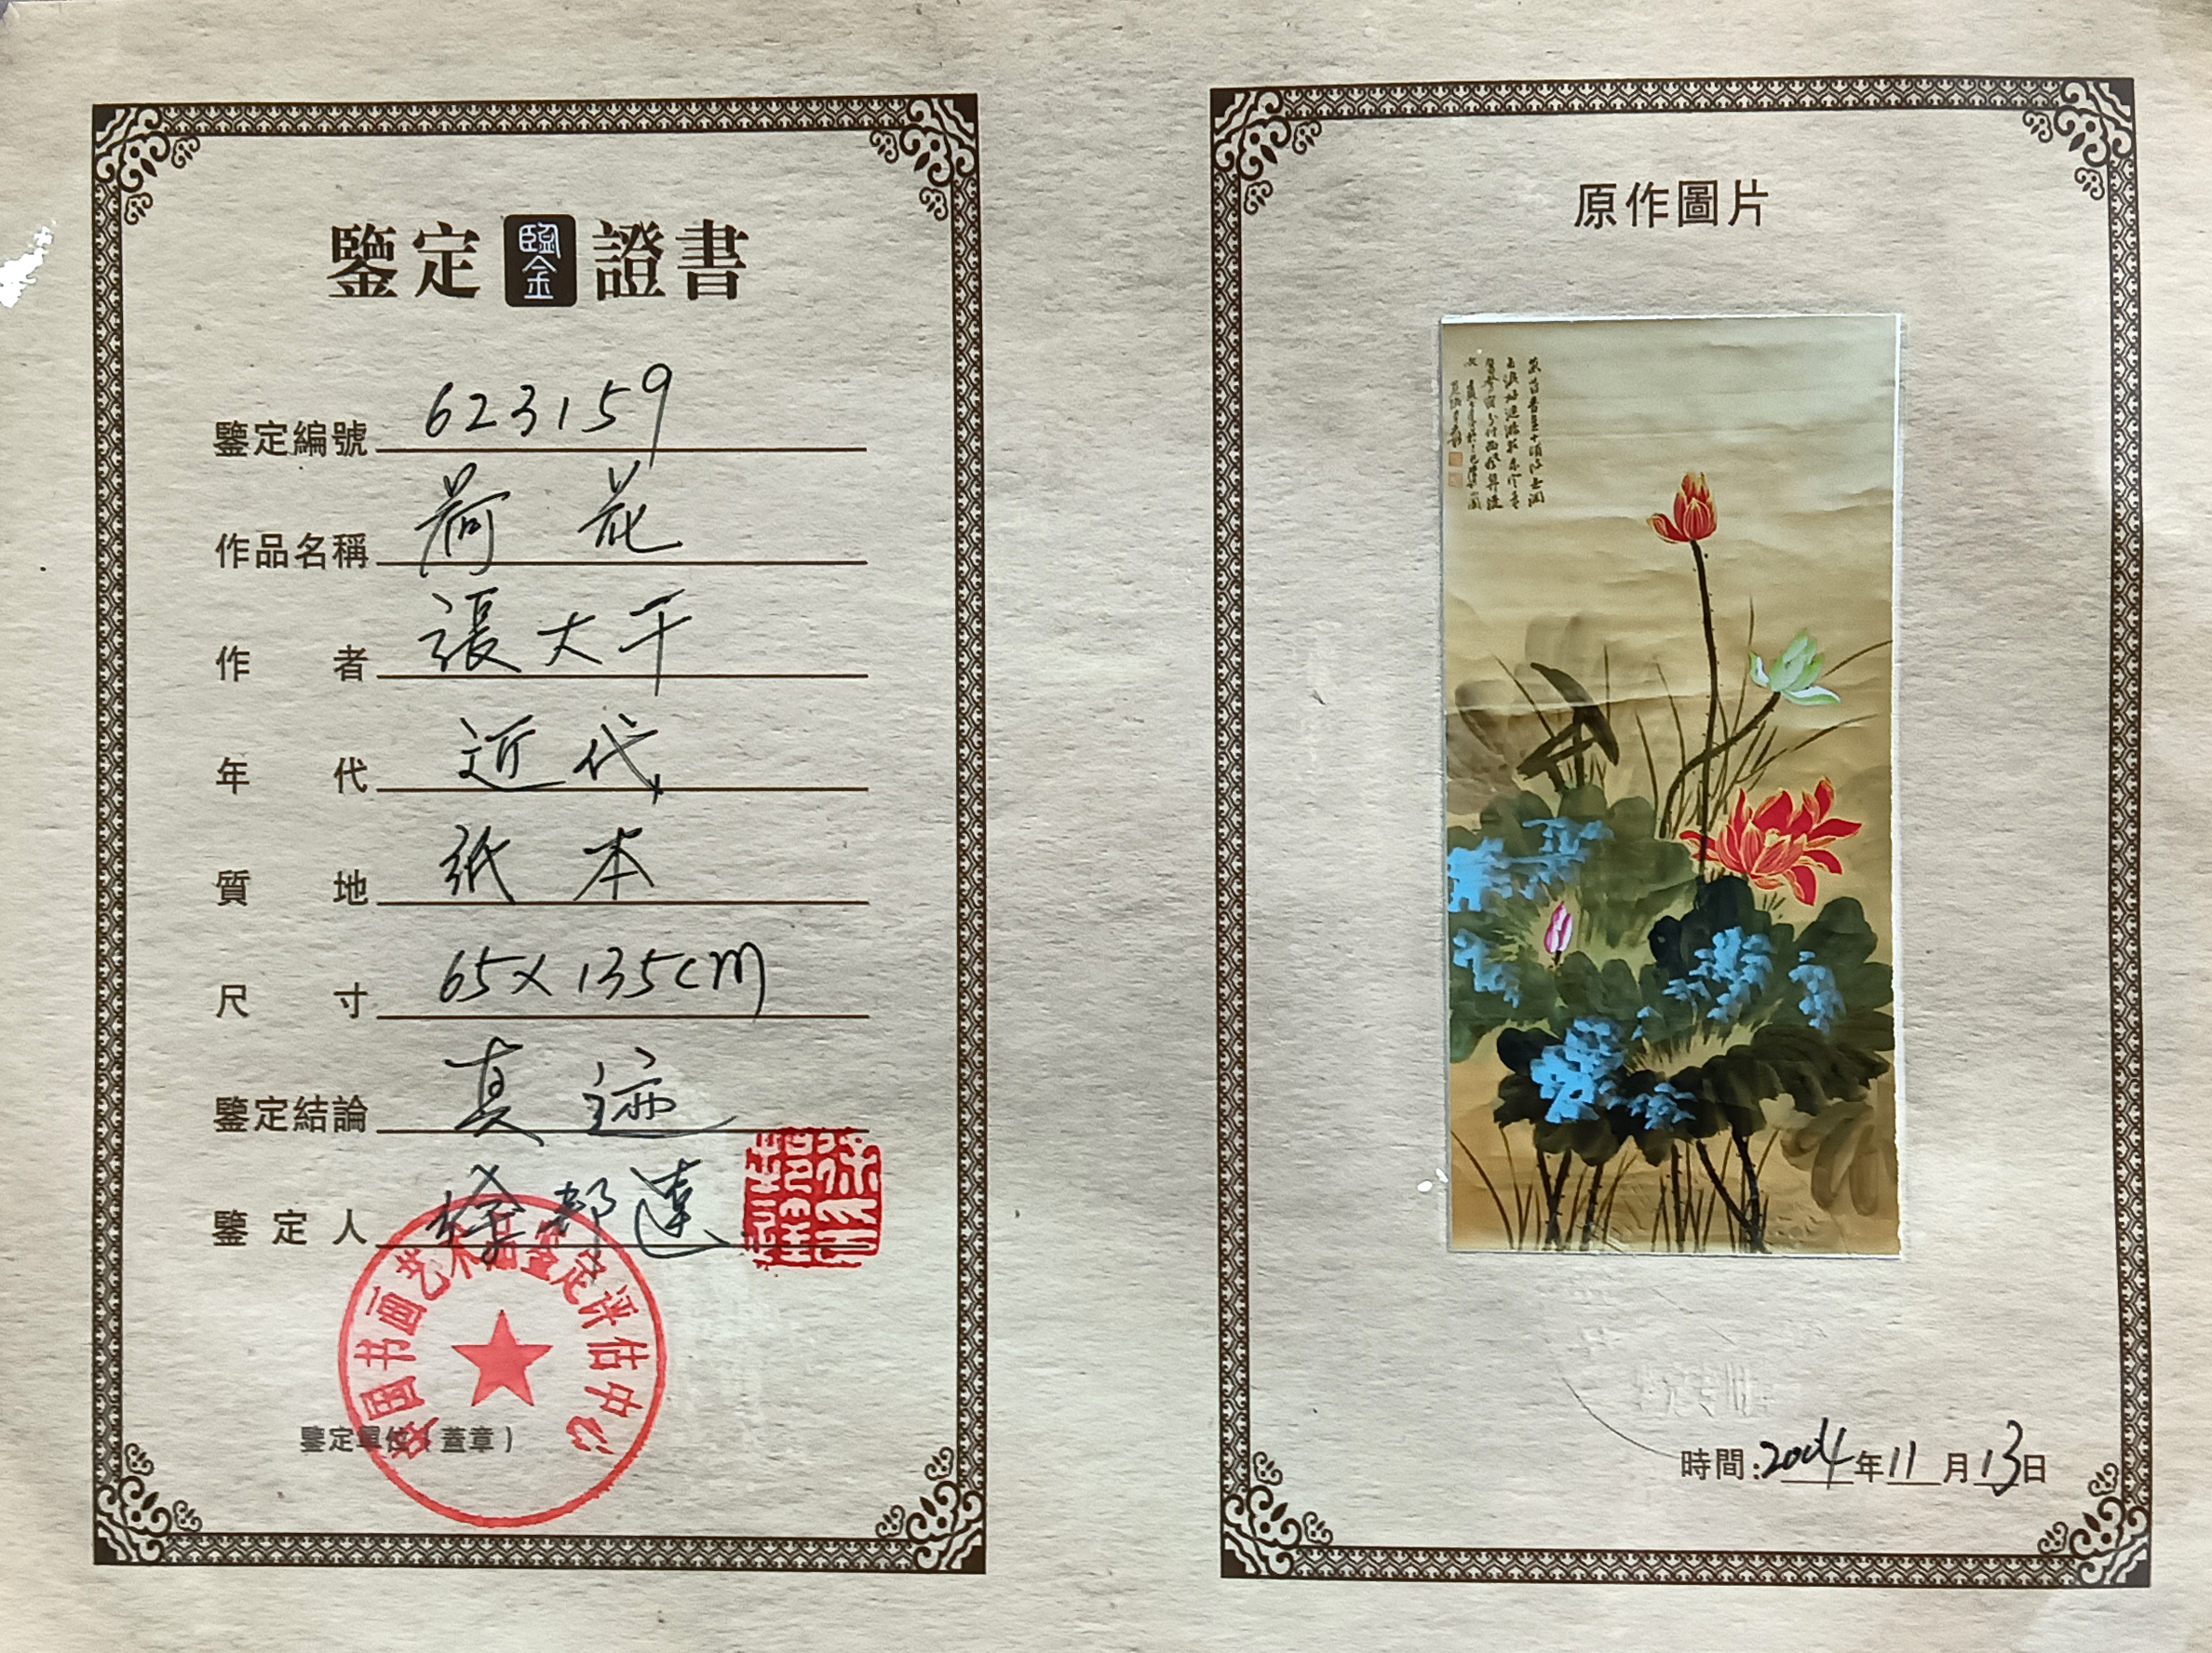 鑒定 鑒 證書
鑒定編號 623159
作品名稱 荷花
作者 張大千
年代 近代
質地 紙本
尺寸 65×135cm
鑒定結論 真迹
鑒定人 徐邦達
书画艺术品鉴定评估中心
鑒定單位（蓋章）
原作圖片
時間：2004年11月13日